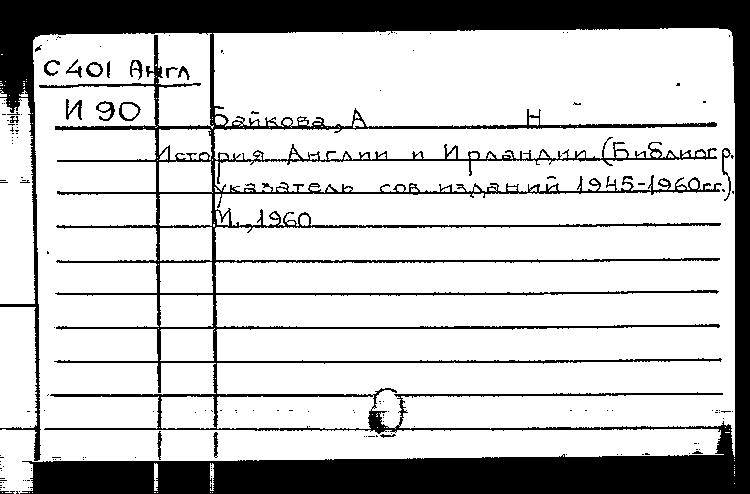 С401 Англ
И 90
Байкова, А Н
История Англии и Ирландии (Библиогр.
указатель сов. изданий 1945-1960гг.)
М., 1960